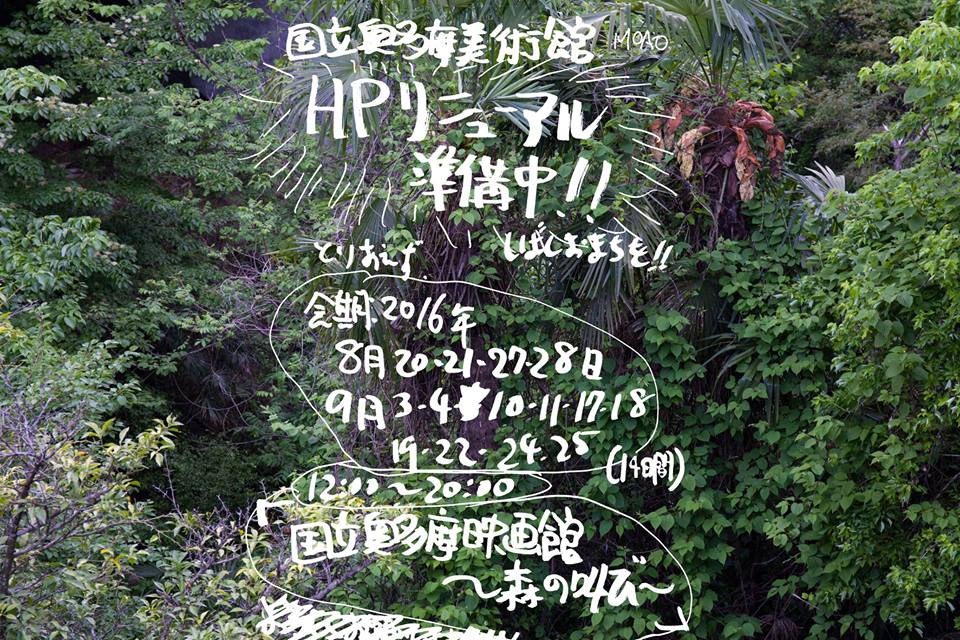 国立奥多摩美術館 MOAO
HPリニューアル
準備中!!
とりあえず しばしおまちを!!
会期.2016年
8月20-21-27-28日
9月3-4 10-11-17-18
19-22-24-25
(14日間)
12:00〜20:00
国立奥多摩映画館
〜森の叫び〜